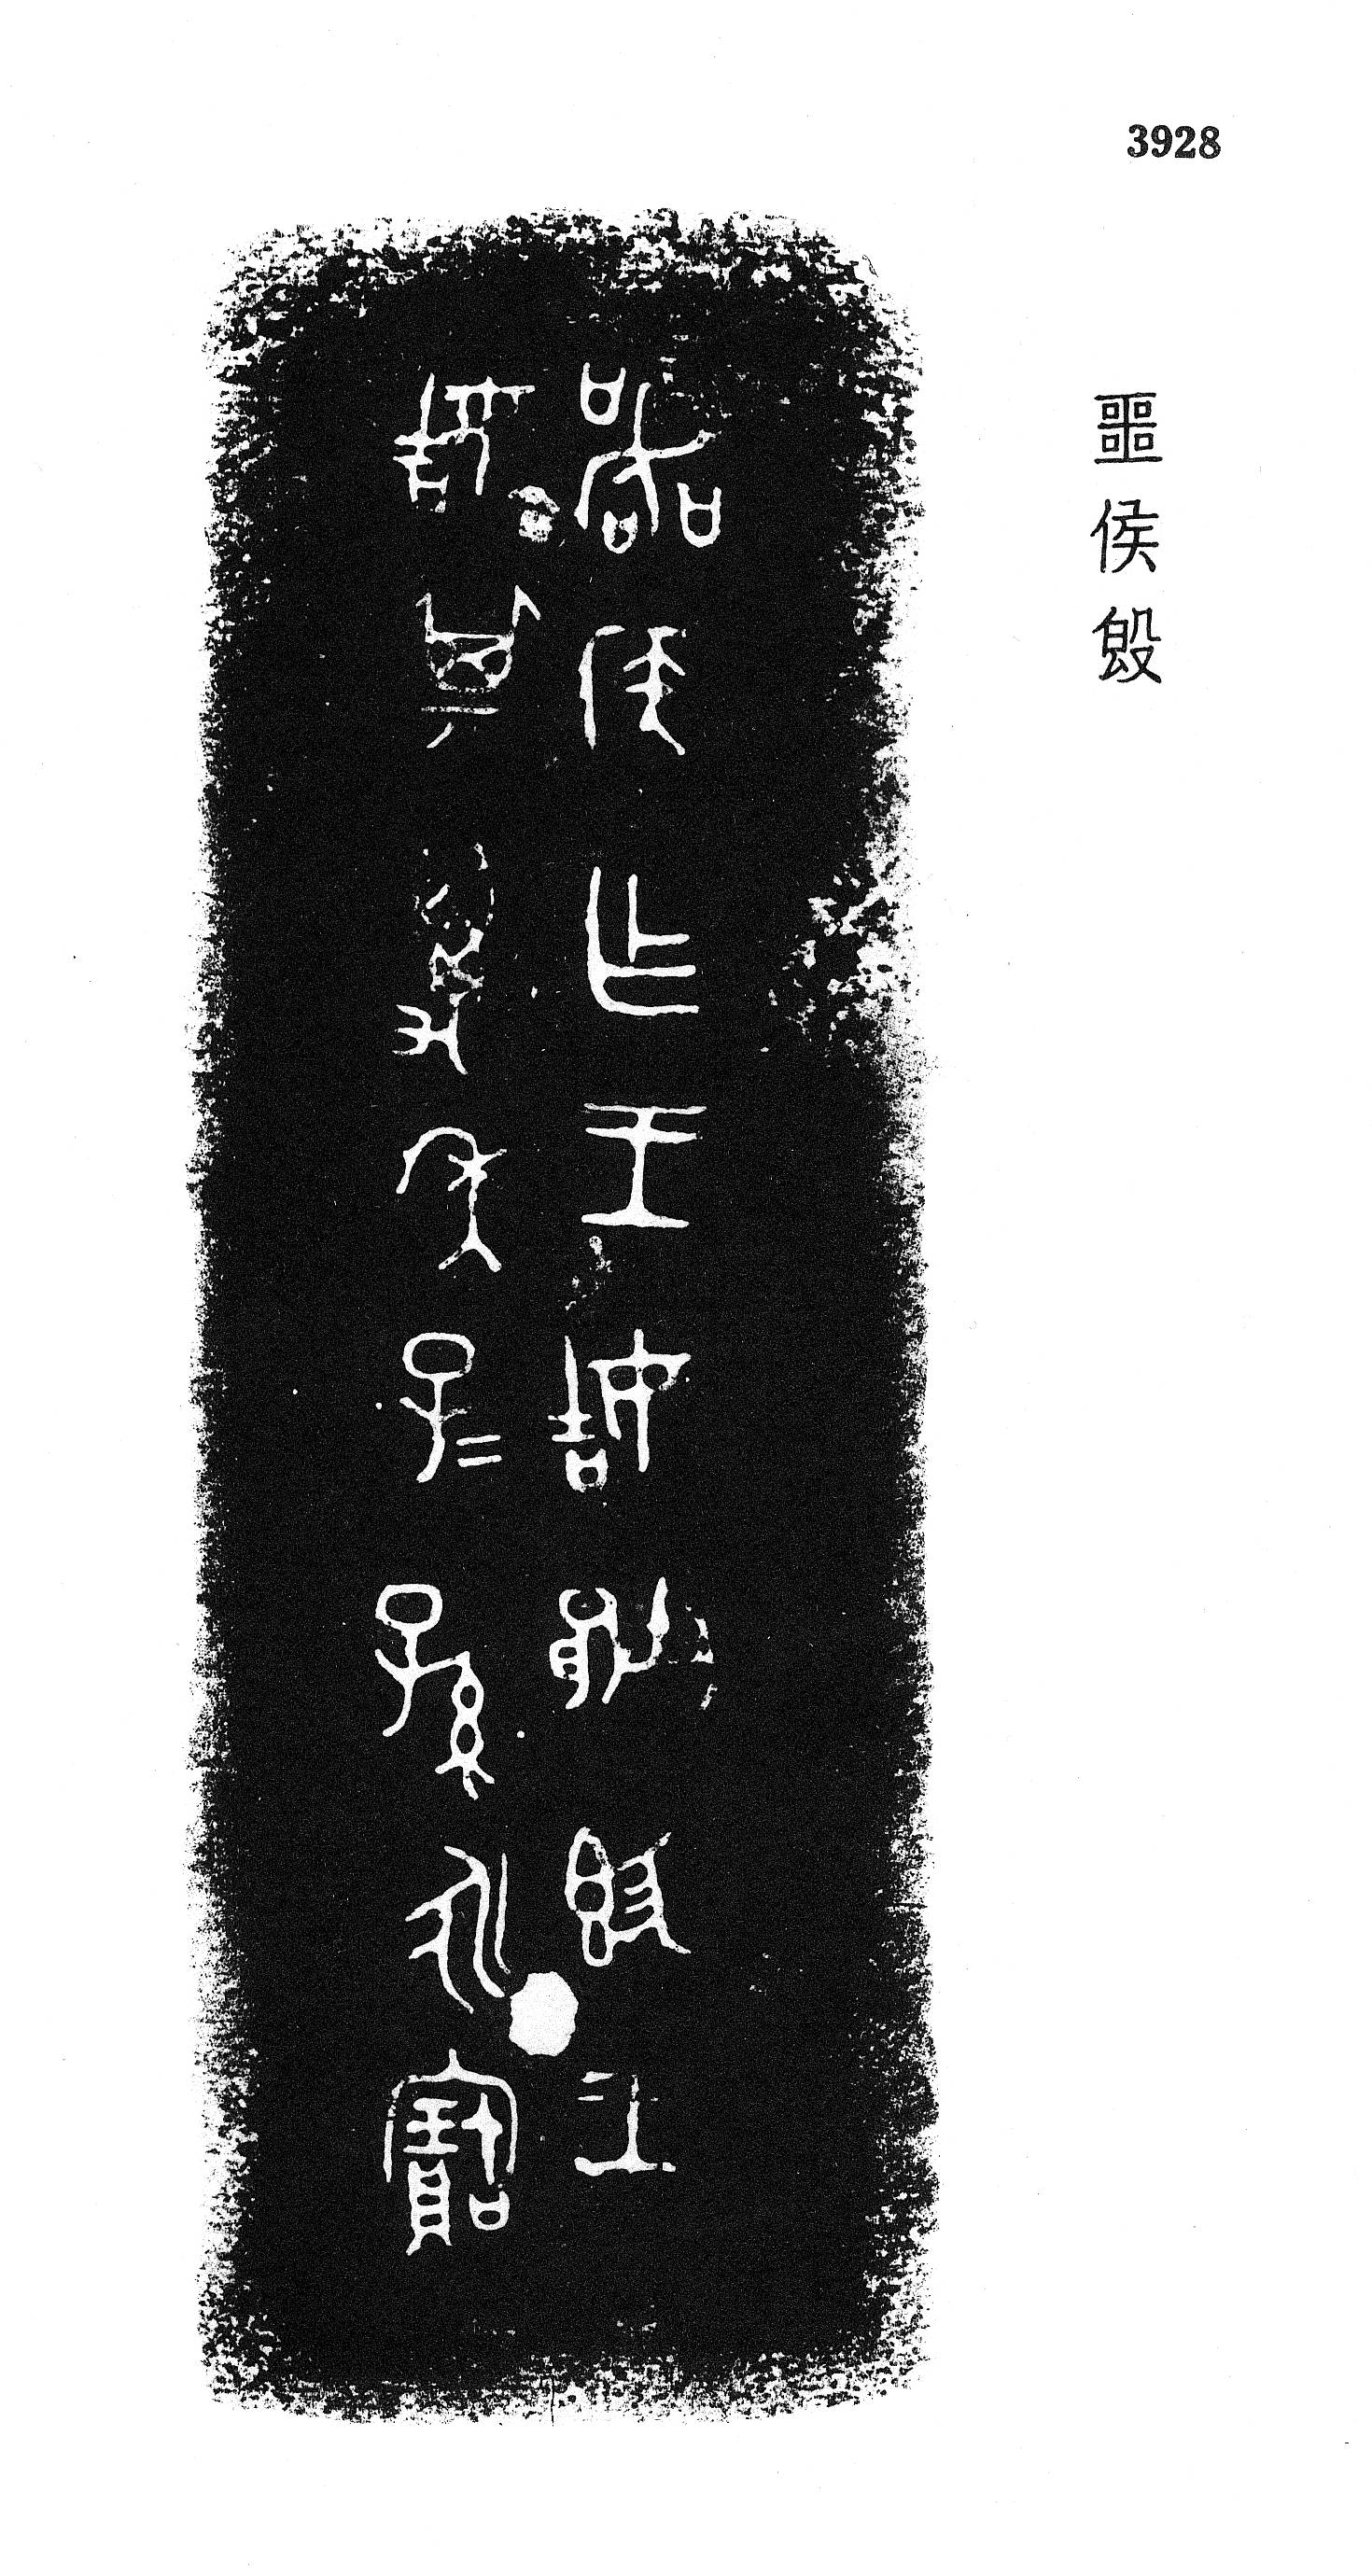 3928
噩侯𣪘
噩侯乍王姞媵𣪘王
姞其萬年子=孫永寶